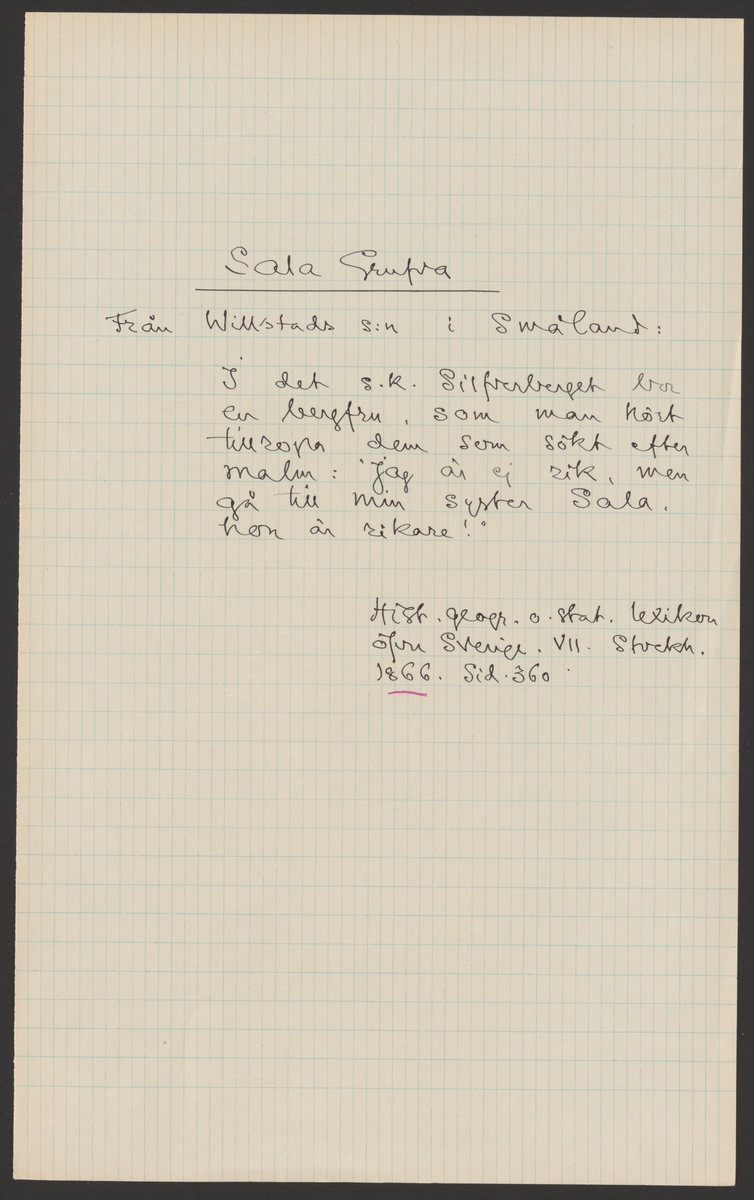 Sala Grufva
Från Willstads s:n i Småland:
I det s.k. Silfverberget bor
en bergfru, som man hört
tillropa dem som sökt efter
malm: "Jag är ej rik, men
gå till min syster Sala,
hon är rikare!"
Hist. geogr. o. stat. lexikon
öfver Sverige. VII. Stockh.
1866. Sid. 360